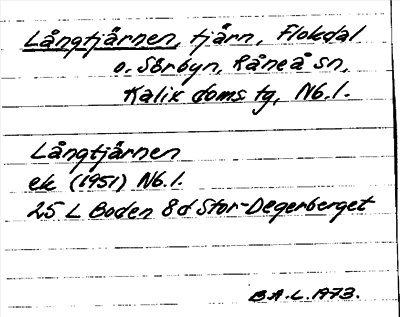 Långtjärnen, tjärn, Flokdal
o. Sörbyn, Råneå sn,
Kalix doms tg, Nb. l.
Långtjärnen
ek (1951) Nb. l.
25 L Boden 8 d Stor-Degerberget
B.A.L. 1973.